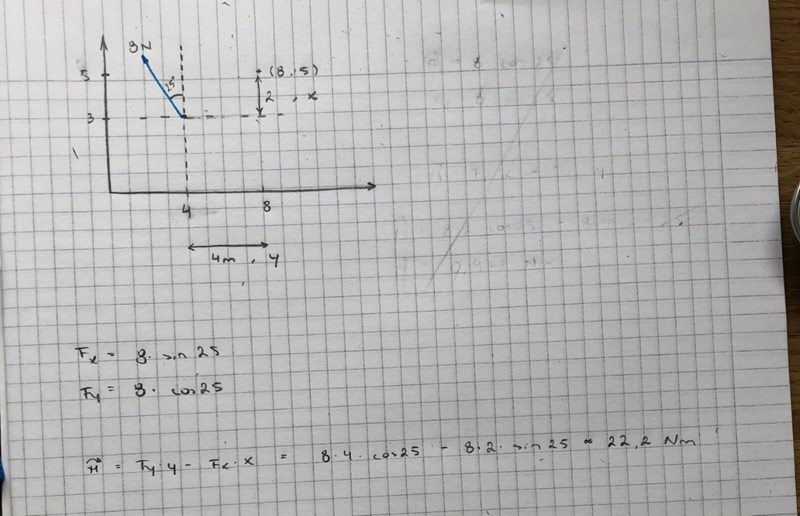 8N
5
25
(8,5)
2 , x
3
4
8
4m , y
Fx = 8. sin 25
Fy = 8. cos 25
M = Fy.y - Fx.x = 8.4. cos 25 - 8.2. sin 25 ≈ 22,2 Nm